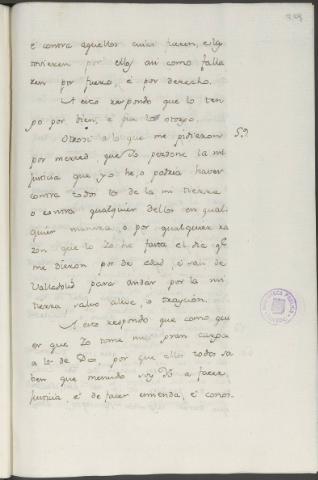 é contra aquellos cuios fueren, é lo
tovieren por ellos asi como falla
ren por fuero, é por derecho.
A esto respondo que lo ten
go por bien, é que lo otorgo.
Otrosi a lo que me pidieron 59
por merced que Yo perdone la mi
justicia que yo he, o podria haver
contra todos los de la mi tierra
o contra qualquier dellos en qual
quier manera, o por qualquier ra
zon que lo Yo he fasta el dia qe
me dieron por de edad, é salí de
Valladolid para andar por la mi
tierra, salvo aleve, o traycion.
A esto respondo que como quie
er que Yo tome mui gran cargo
a los de Dios, por que ellos todos sa
ben que menudo soy Yo a facer
justicia, é de facer emienda, é conos-